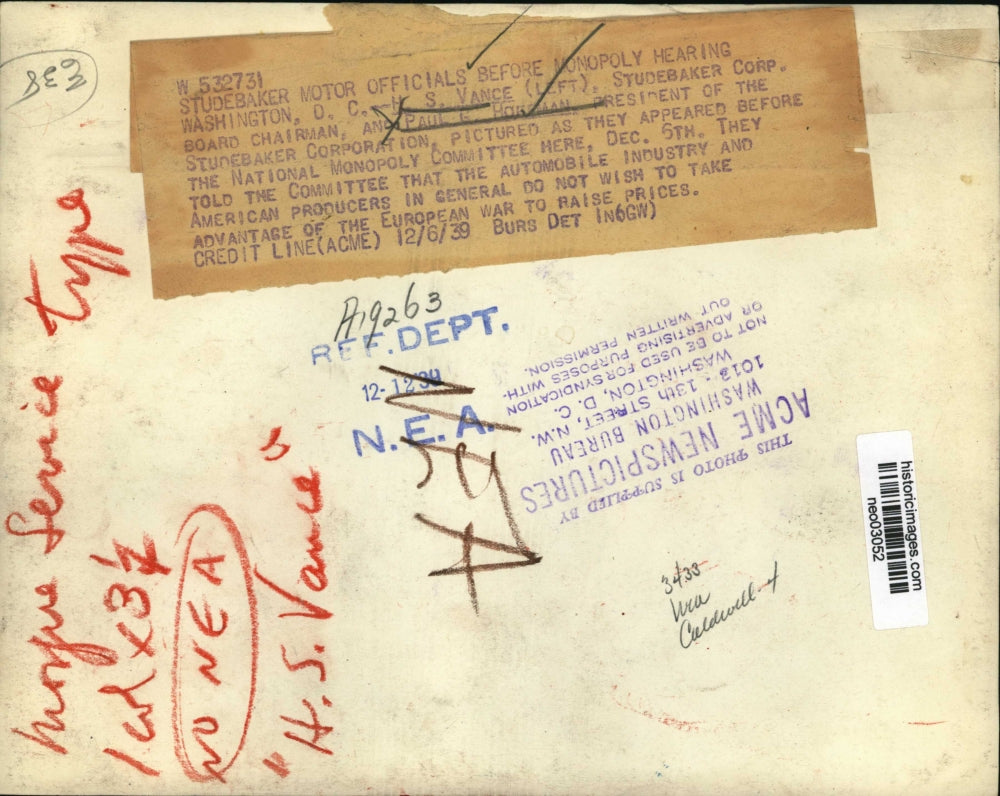 W 532731
STUDEBAKER MOTOR OFFICIALS BEFORE MONOPOLY HEARING
WASHINGTON, D. C.--H. S. VANCE (LEFT), STUDEBAKER CORP.
BOARD CHAIRMAN, AND PAUL G. HOFFMAN, PRESIDENT OF THE
STUDEBAKER CORPORATION, PICTURED AS THEY APPEARED BEFORE
THE NATIONAL MONOPOLY COMMITTEE HERE, DEC. 6TH. THEY
TOLD THE COMMITTEE THAT THE AUTOMOBILE INDUSTRY AND
AMERICAN PRODUCERS IN GENERAL DO NOT WISH TO TAKE
ADVANTAGE OF THE EUROPEAN WAR TO RAISE PRICES.
CREDIT LINE(ACME) 12/6/39 BURS DET IN6GW)
A19263
REF. DEPT.
12-12 39
N. E. A.
NEA
THIS PHOTO IS SUPPLIED BY
ACME NEWSPICTURES
WASHINGTON BUREAU
1013 - 13th STREET, N.W.
WASHINGTON, D. C.
TO BE USED FOR SYNDICATION
NOT ADVERTISING PURPOSES WITH-
OUT WRITTEN PERMISSION.
morgue service type
1 col x 3 1/4
NO NEA
"H. S. Vance"
3433
Caldwell
historicimages.com
neo03052